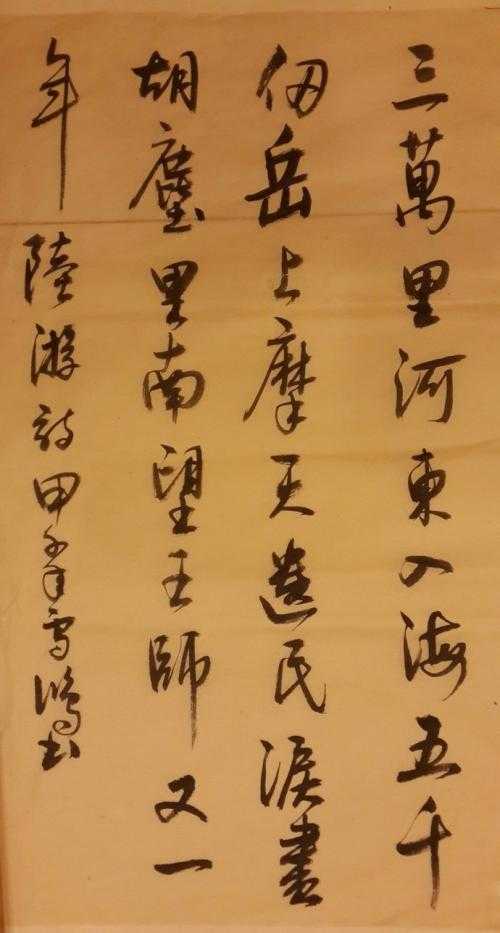 三萬里河東入海五千
仞岳上摩天遺民淚盡
胡塵里南望王師又一
年 陸游詩甲午年雪鴻书